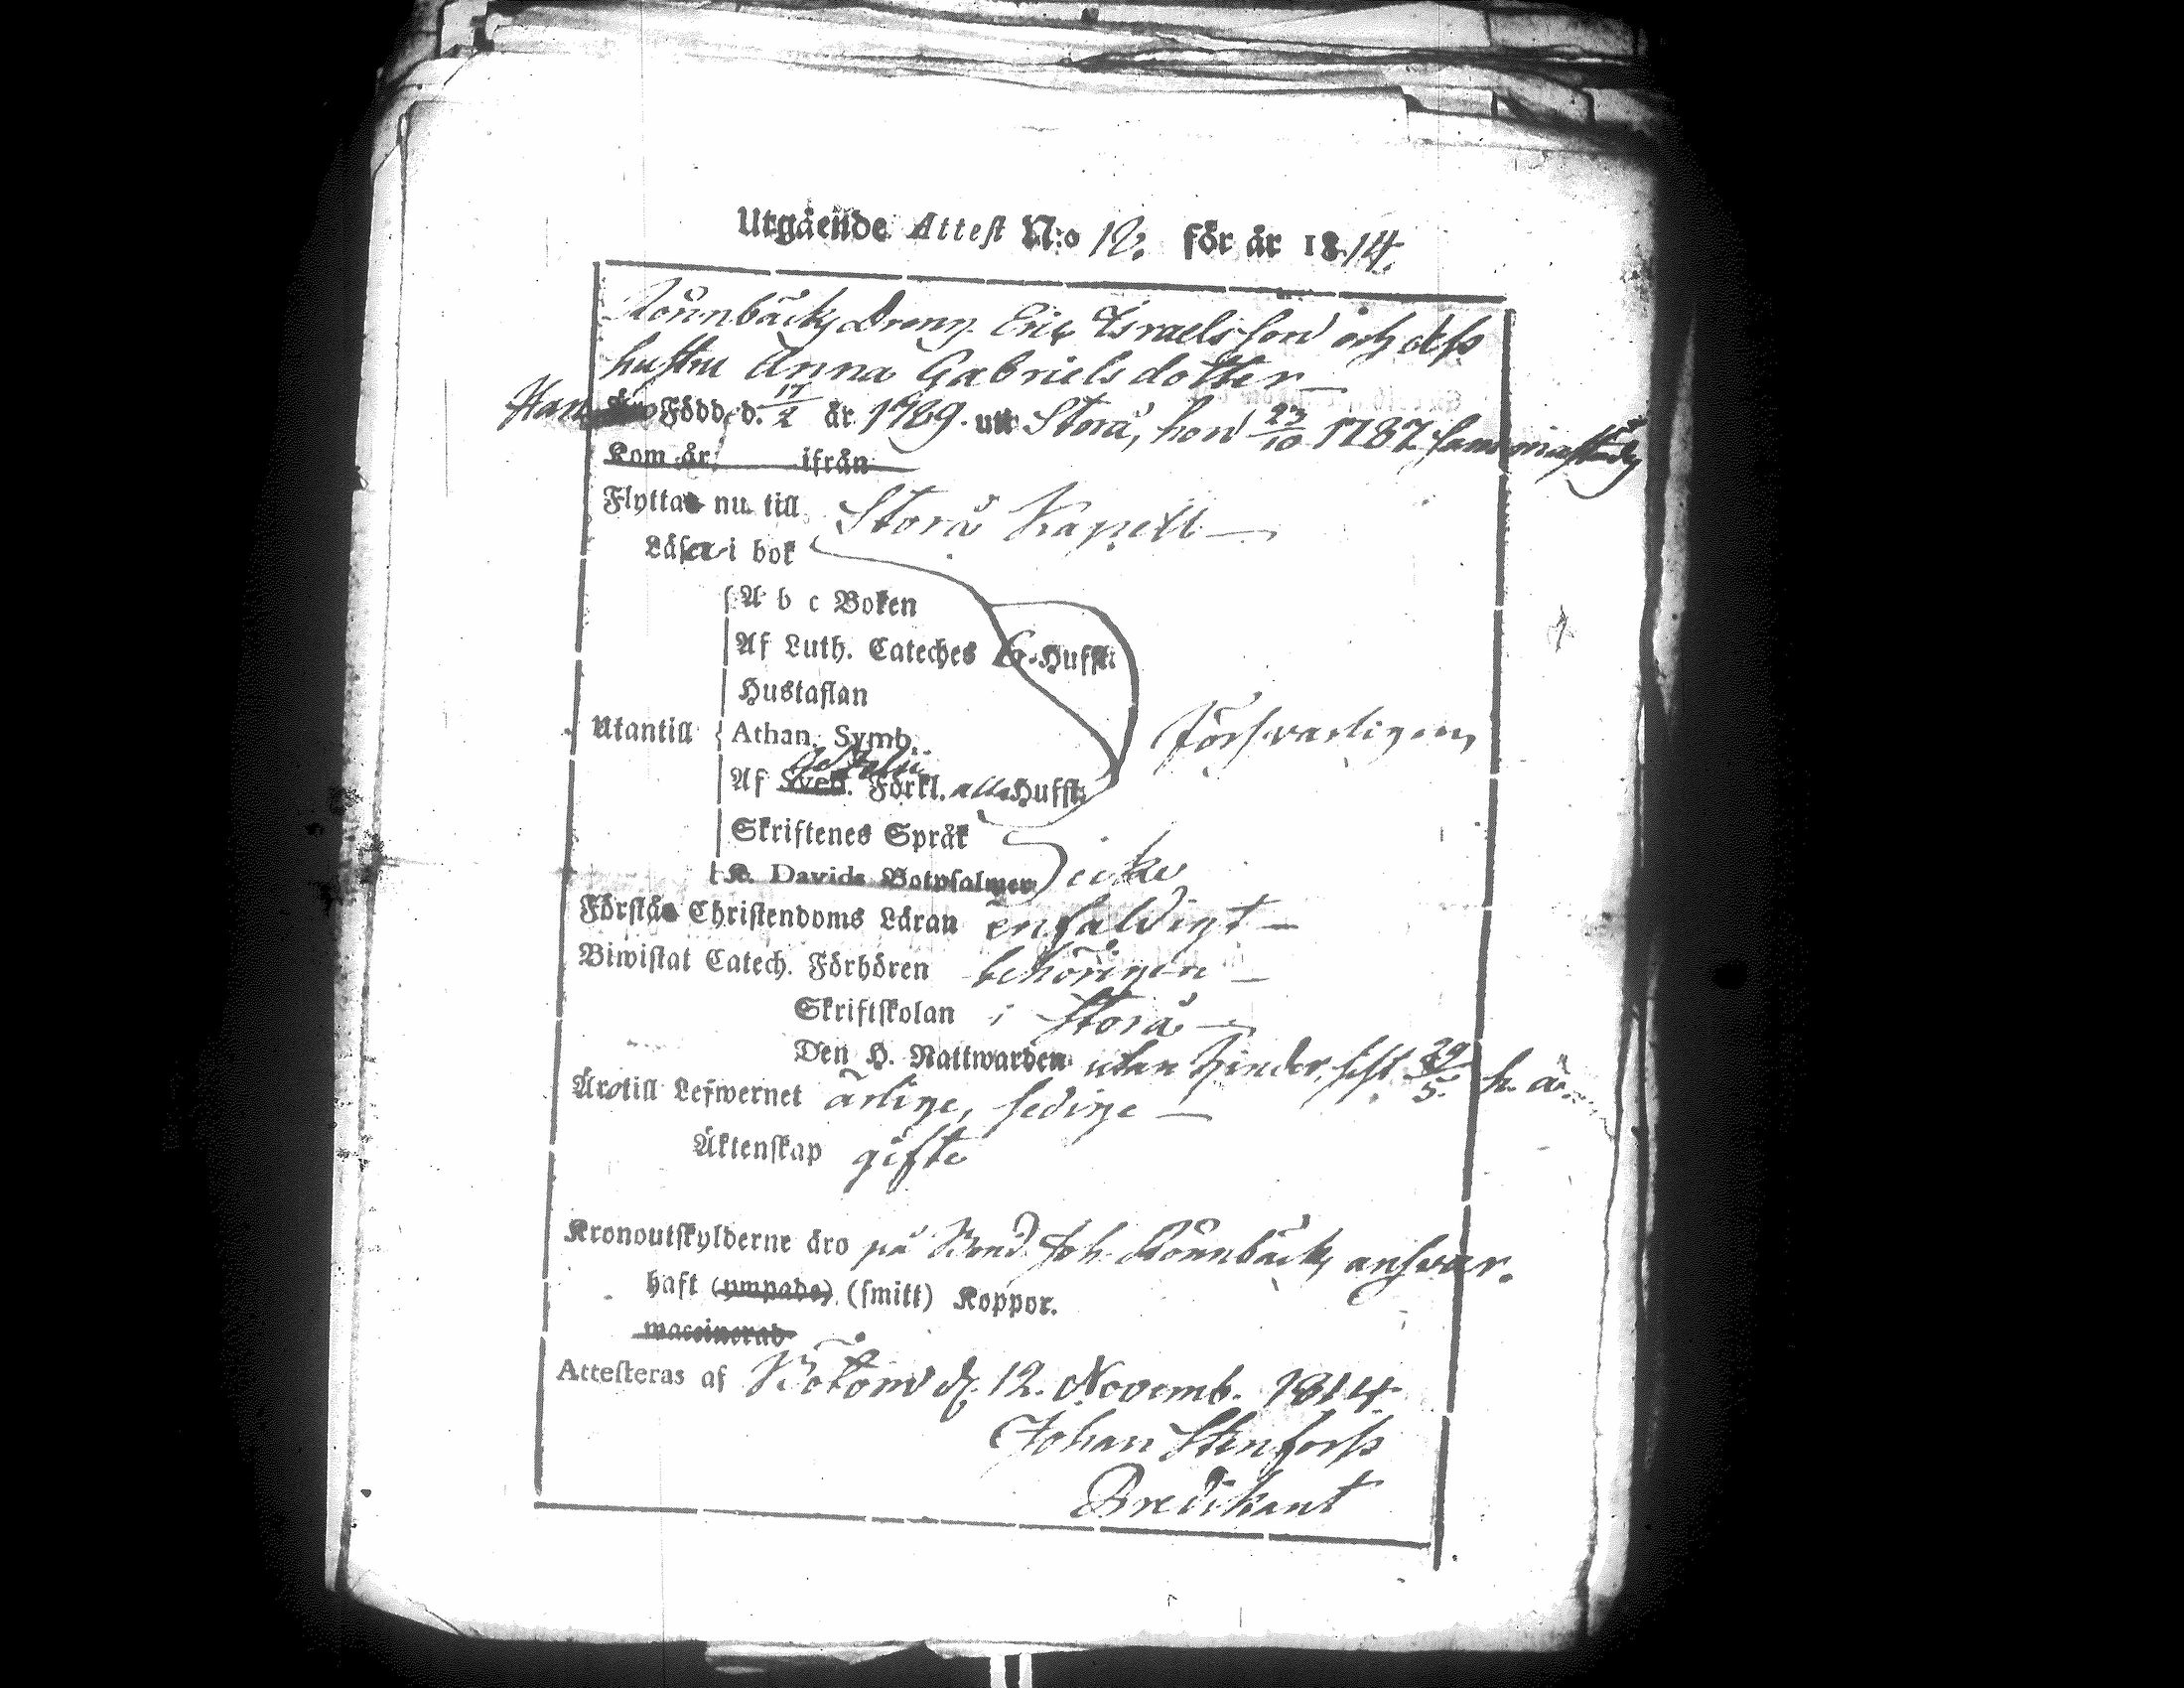 Utgående Attest N:o 12. för år 1814.
Rönnbäcks Dreng Eric Israelsson och dess
hustru Anna Gabrielsdotter
Han Född d. 17/2 år 1789. utt Storå, hon 23/10 1787
Kom år ifrån
Flytta nu till Storå Kapell
Läsa i bok
A b c Boken
Af Luth. Cateches 6. Hufst:
Hustaflan
Utantill Athan. Symb. Försvarligen
Af Sveb. Förkl. alla Hufst:
Skriftenes Språk
K. Davids Botpsalmer icke
Förstå Christendoms Läran enfaldigt
Biwistat Catech. Förhören behörigen
Skriftskolan i Storå
Den H. Nattwarden utan hinder, sist 29/5 h. å.
Äro till Lefwernet ärlige, sedige
Äktenskap gifte
Kronoutskylderne äro på Bond. Joh. Rönnbäcks ansvar.
haft (ympade) (smitt) Koppor.
waccinerad
Attesteras af Bötom d. 12. Novemb. 1814.
Johan Stenforss
Predikant